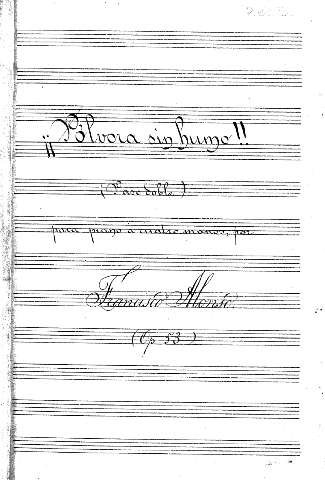 ¡¡Pólvora sin humo!!
(Pasodoble)
para piano a cuatro manos, por
Francisco Alonso
(Op 53)